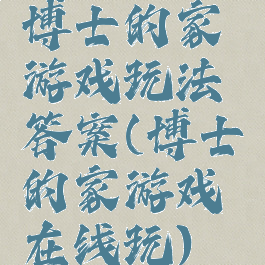 博士的家
游戏玩法
答案(博士
的家游戏
在线玩)